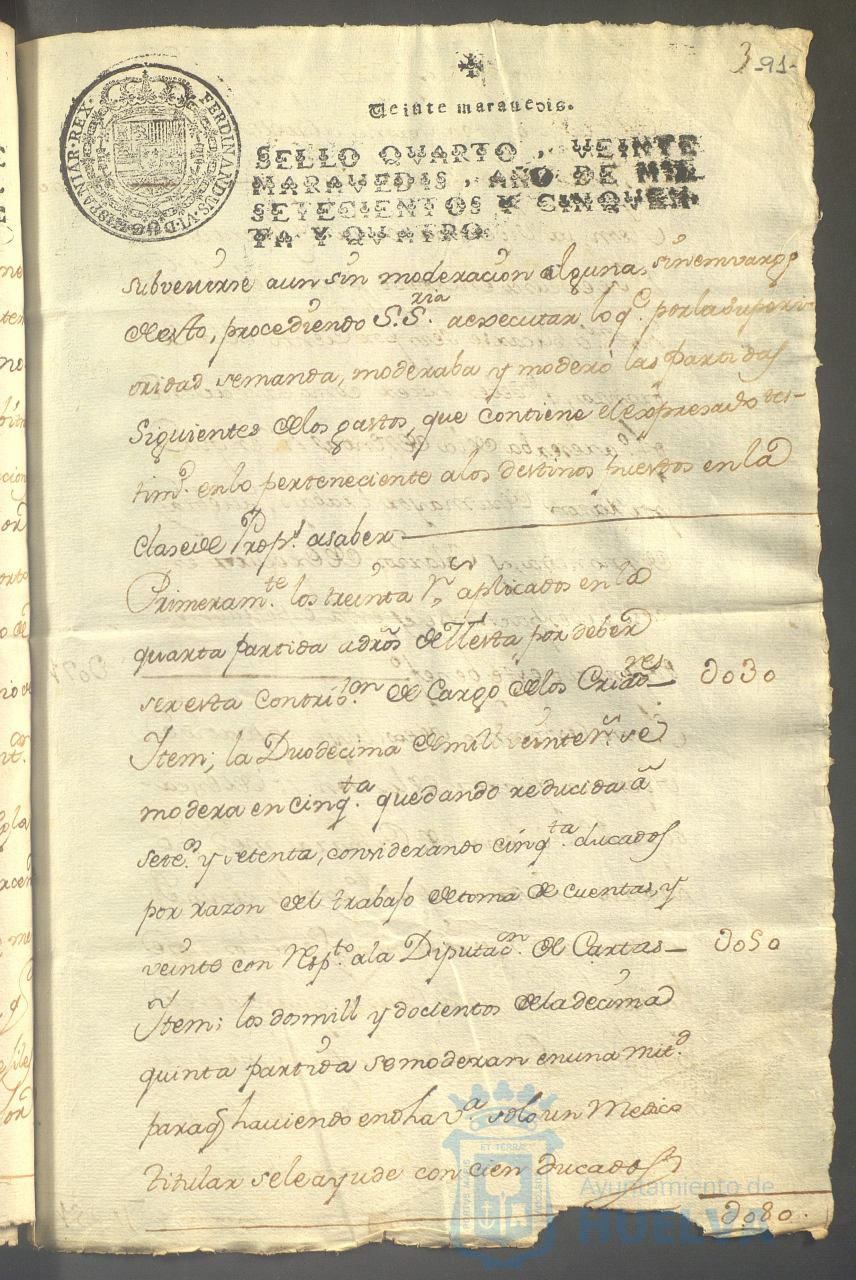 3 -91-
Veinte maravedis.
SELLO QVARTO, VEINTE
MARAVEDIS, AÑO DE MIL
SETECIENTOS Y CINQUEN-
TA Y QVATRO.
FERDINANDUS. VI. D. G. HISPANIAR. REX.
subvenirse aun sin moderacion alguna, sin emvargo
de esto, procediendo S.S.ria a executar lo q.e por la superi-
oridad se manda, moderaba y moderó las partidas
siguientes de los gastos, que contiene el expresado tes-
tim.o en lo perteneciente a los destinos puestos en la
clase de Prop.s a saber
Primeram.te los treinta r.s aplicados en la
quarta partida a dros de Mesta por deber
ser esta contrib.on de Cargo de los Criad.res — ∂030
Item; la Duodecima de mil veinte r.s se
modera en cinq.ta quedando reducida a
sete.s y setenta, considerando cinq.ta ducados
por razon del trabajo de toma de cuentas, y
veinte con resp.to a la Diputa.on de Cartas — ∂050
Item; los dos mill y docientos de la decima
quinta partida se moderan en una mit.d
para q haviendo en dha v.a solo un Medico
titular se le ayude con cien ducados
∂080.
ET TERRAE
Ayuntamiento de
HUELVA